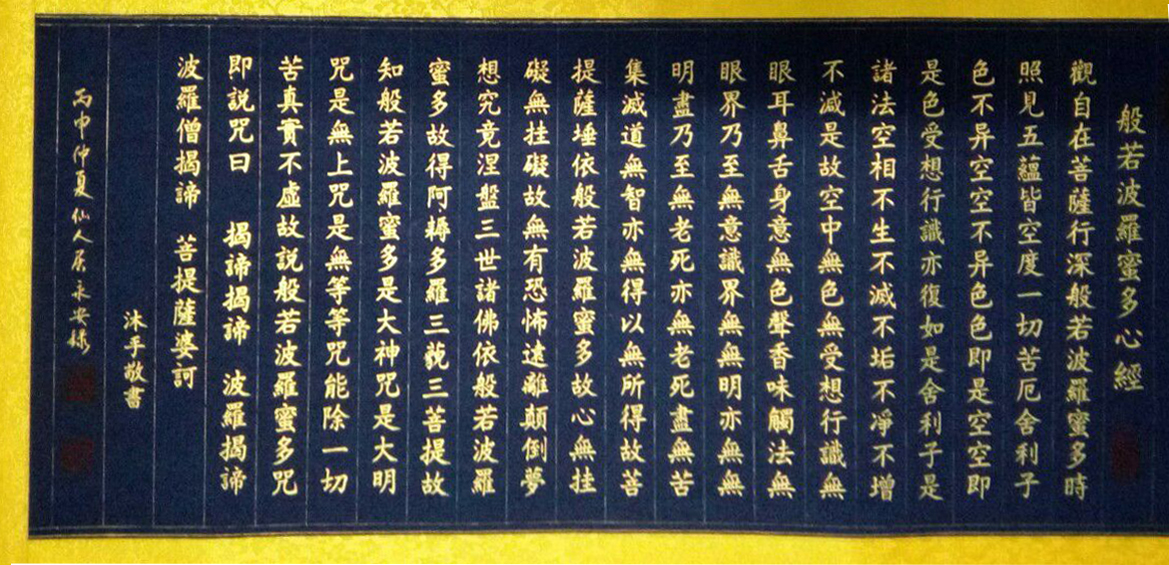 般若波羅蜜多心經
觀自在菩薩行深般若波羅蜜多時
照見五蘊皆空度一切苦厄舍利子
色不异空空不异色色即是空空即
是色受想行識亦復如是舍利子是
諸法空相不生不滅不垢不淨不增
不減是故空中無色無受想行識無
眼耳鼻舌身意無色聲香味觸法無
眼界乃至無意識界無無明亦無無
明盡乃至無老死亦無老死盡無苦
集滅道無智亦無得以無所得故菩
提薩埵依般若波羅蜜多故心無挂
礙無挂礙故無有恐怖遠離顛倒夢
想究竟涅盤三世諸佛依般若波羅
蜜多故得阿耨多羅三藐三菩提故
知般若波羅蜜多是大神咒是大明
咒是無上咒是無等等咒能除一切
苦真實不虛故説般若波羅蜜多咒
即説咒曰 揭諦揭諦 波羅揭諦
波羅僧揭諦 菩提薩婆訶
沐手敬書
丙申仲夏仙人居永安録